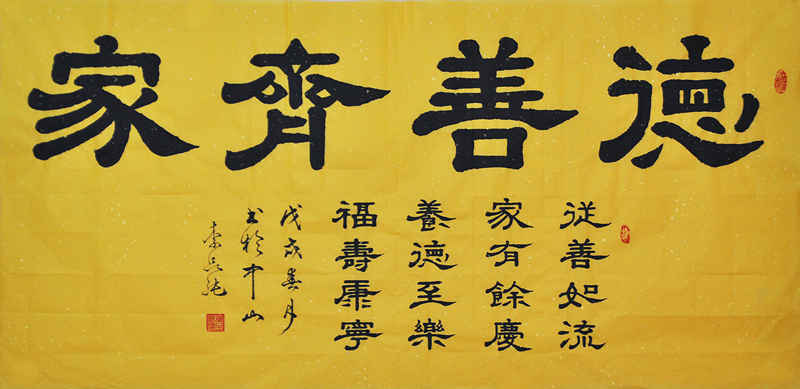 德善齊家
從善如流
家有餘慶
養德至樂
福壽康寧
戊戌春月
书於中山
李